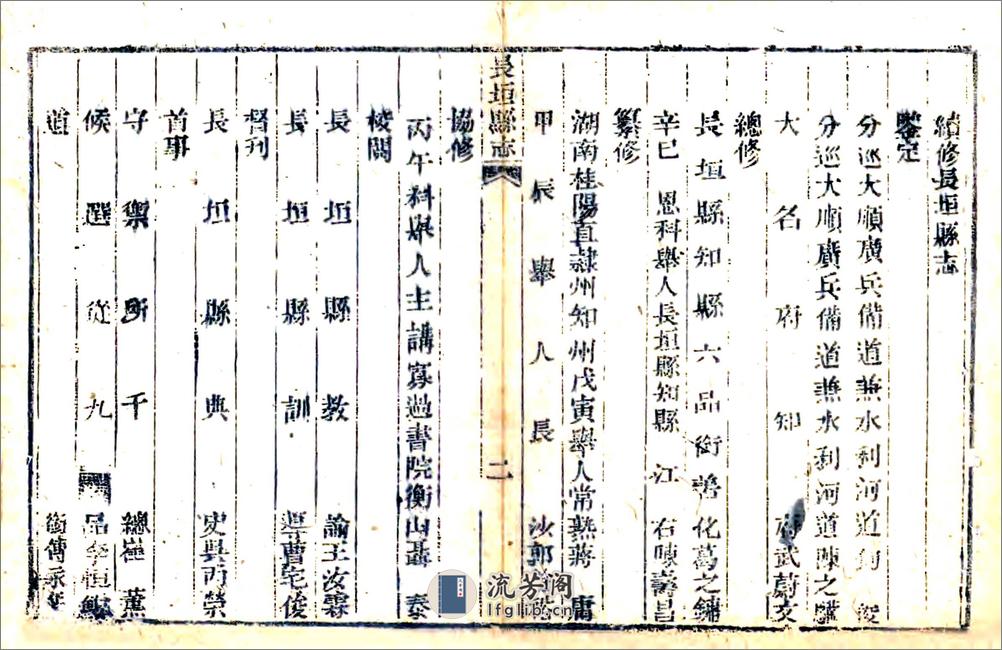 續修長垣縣志
鑒定
分巡大順廣兵備道兼水利河道
分巡大順廣兵備道兼水利河道陳之驥
大名府知府武蔚文
總修
長垣縣知縣六品銜善化葛之鏞
辛巳恩科舉人長垣縣知縣江右陳壽昌
纂修
湖南桂陽直隸州知州戊寅舉人常熟蔣庸
甲辰舉人長沙郭
長垣縣志
二
丙午科舉人主講寡過書院衡山聶泰
協修
校閱
長垣縣教諭王汝霖
長垣縣訓導曹宅俊
督刊
長垣縣典史吳丙榮
首事
守禦所千總崔薰
候選從九品李恒
道銜傅永
流芳阁
lfglib.cn